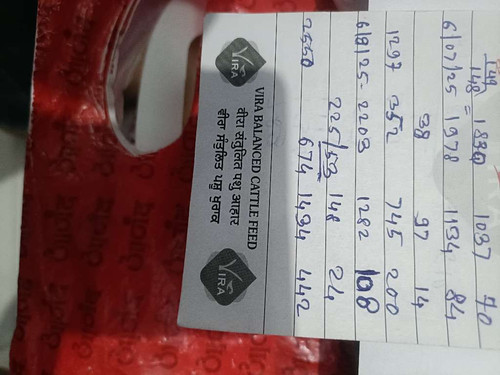 149
148 = 1830 1037 70
6/07/25 1978 1134 84
38 97 14
1297 352 745 200
6/8/25- 2203 1282 108
225/153 148 24
2550 674 1434 442
VIRA BALANCED CATTLE FEED
वीरा संतुलित पशु आहार
ਵੀਰਾ ਸੰਤੁਲਿਤ ਪਸ਼ੂ ਖੁਰਾਕ
VIRA
VIRA